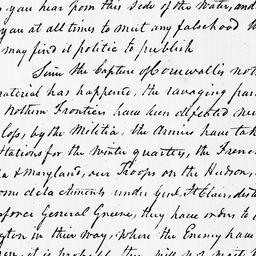 you hear from this side of the Water, and
you at all times to meet any falsehood
may find it politic to publish
Since the Capture of Cornwallis not
material has happened, the ravaging par
Nothern Frontiers have been defeated
loss, by the Militia, the Armies have tak
Stations for the Winter quarters, the French
& Maryland, our Troops on the Hudson,
some detachments under Genl. St Clair, dest
inforce General Greene, they have orders to
in their way, where the Enemy have
it is probable they will not